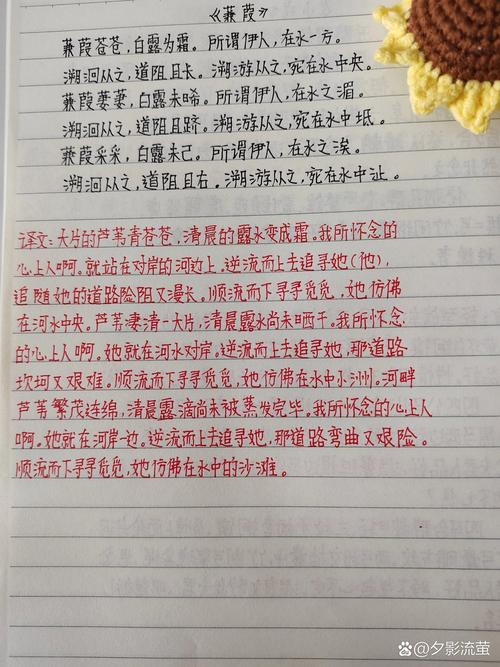 《蒹葭》
蒹葭苍苍，白露为霜。所谓伊人，在水一方。
溯洄从之，道阻且长。溯游从之，宛在水中央。
蒹葭萋萋，白露未晞。所谓伊人，在水之湄。
溯洄从之，道阻且跻。溯游从之，宛在水中坻。
蒹葭采采，白露未已。所谓伊人，在水之涘。
溯洄从之，道阻且右。溯游从之，宛在水中沚。
译文：大片的芦苇青苍苍，清晨的露水变成霜。我所怀念的
心上人啊。就站在对岸的河边上。逆流而上去追寻她（他），
追随她的道路险阻又漫长。顺流而下寻寻觅觅，她仿佛
在河水中央。芦苇凄清一大片，清晨露水尚未晒干。我所怀念
的心上人啊。她就在河水对岸。逆流而上去追寻她，那道路
坎坷又艰难。顺流而下寻寻觅觅，她仿佛在水中小洲。河畔
芦苇繁茂连绵，清晨露滴尚未被蒸发完毕。我所怀念的心上人
啊。她就在河岸一边。逆流而上去追寻她，那道路弯曲又艰险。
顺流而下寻寻觅觅，她仿佛在水中的沙滩。
百家号/夕影流萤